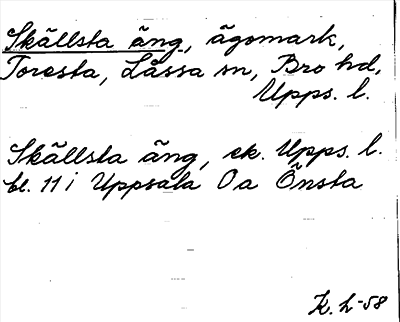 Skällsta äng, ägomark,
Toresta, Låssa sn, Bro hd,
Upps. l.
Skällsta äng, ek. Upps. l.
bl. 11 i Uppsala Oa Önsta
K. L-58